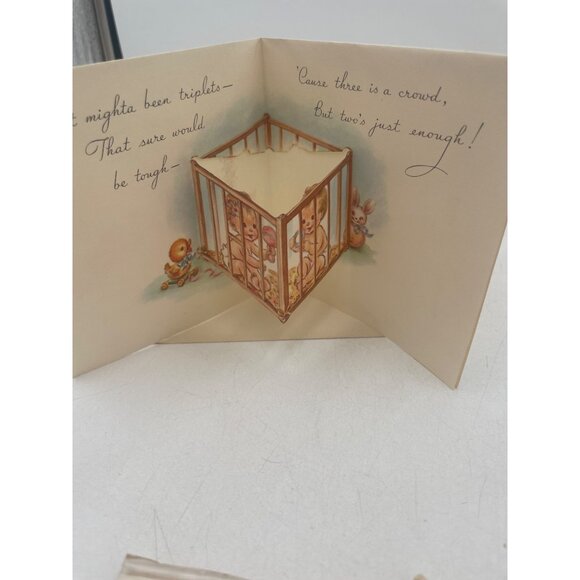 mighta been triplets—
That sure would
be tough—
'Cause three is a crowd,
But two's just enough!